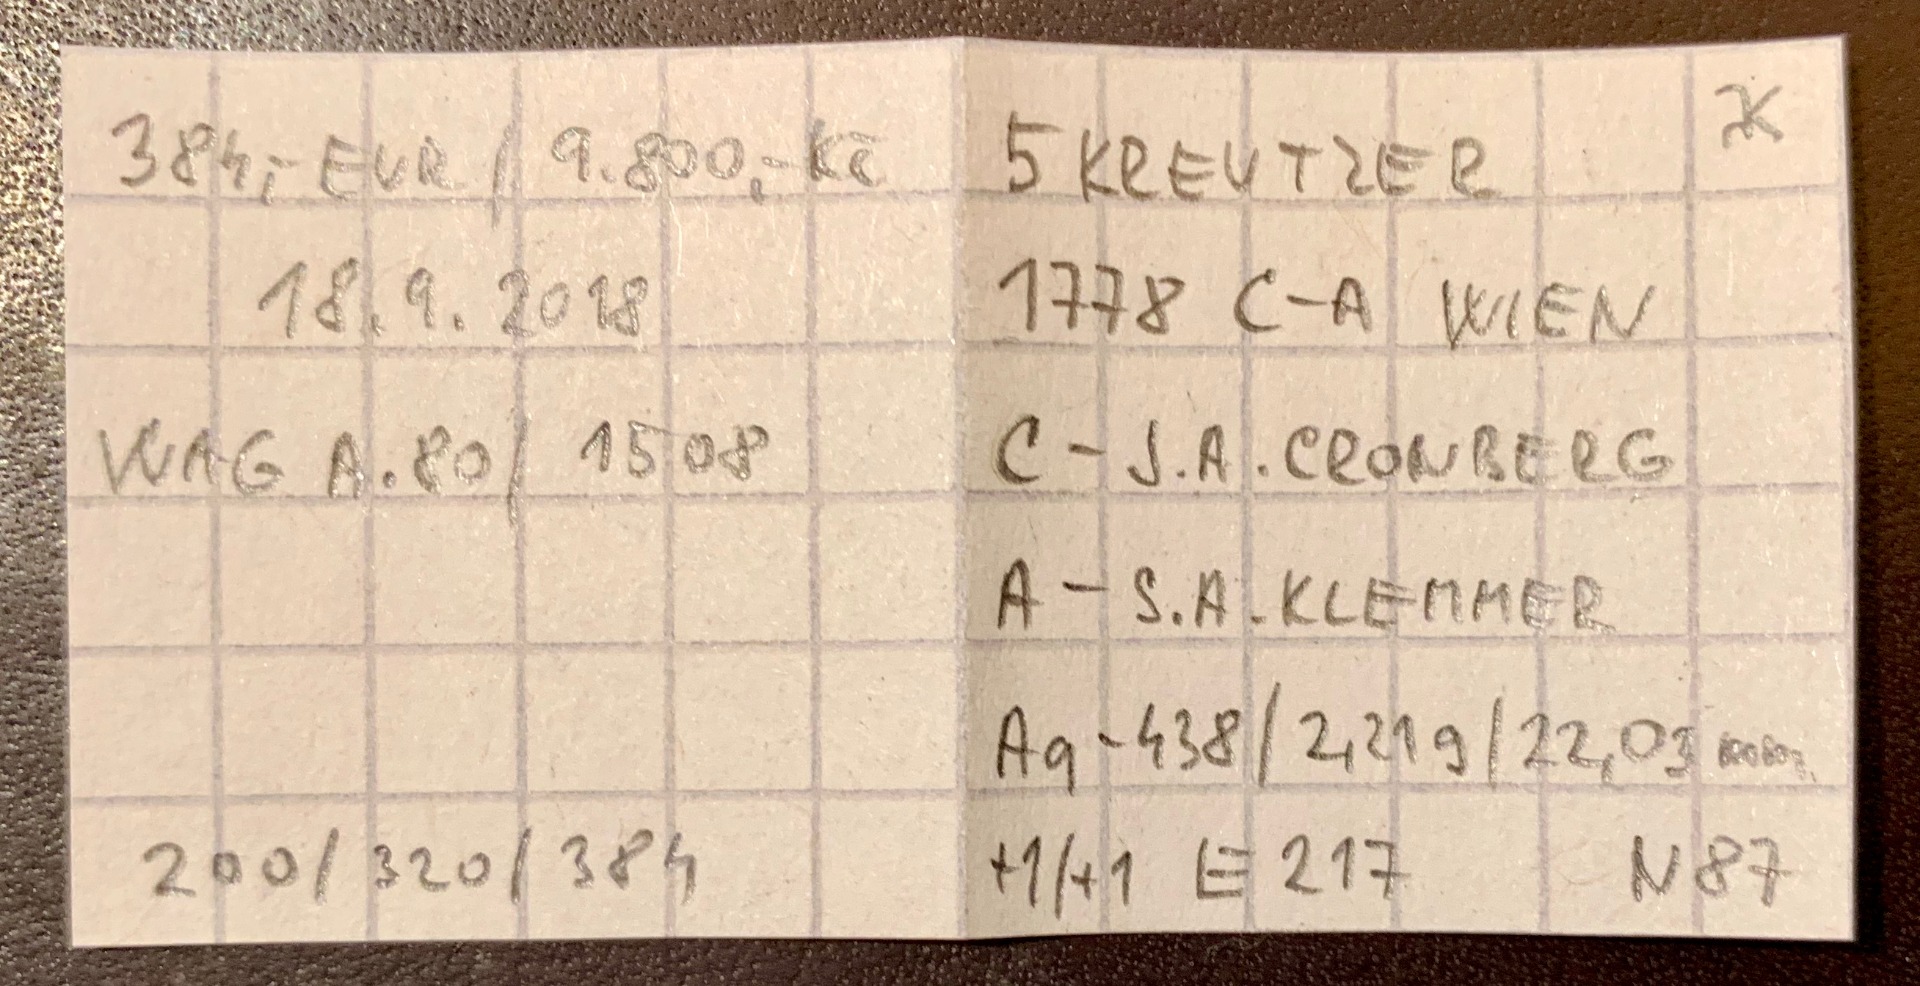 384,- EUR / 9.800,- Kč
18.9.2018
WAG A.80 / 1508
200/320/384
K
5 KREUTZER
1778 C-A WIEN
C - J.A. CRONBERG
A - S.A. KLEMMER
Ag - 438/2,21g/22,03 mm
+1/+1 E 217 N 87